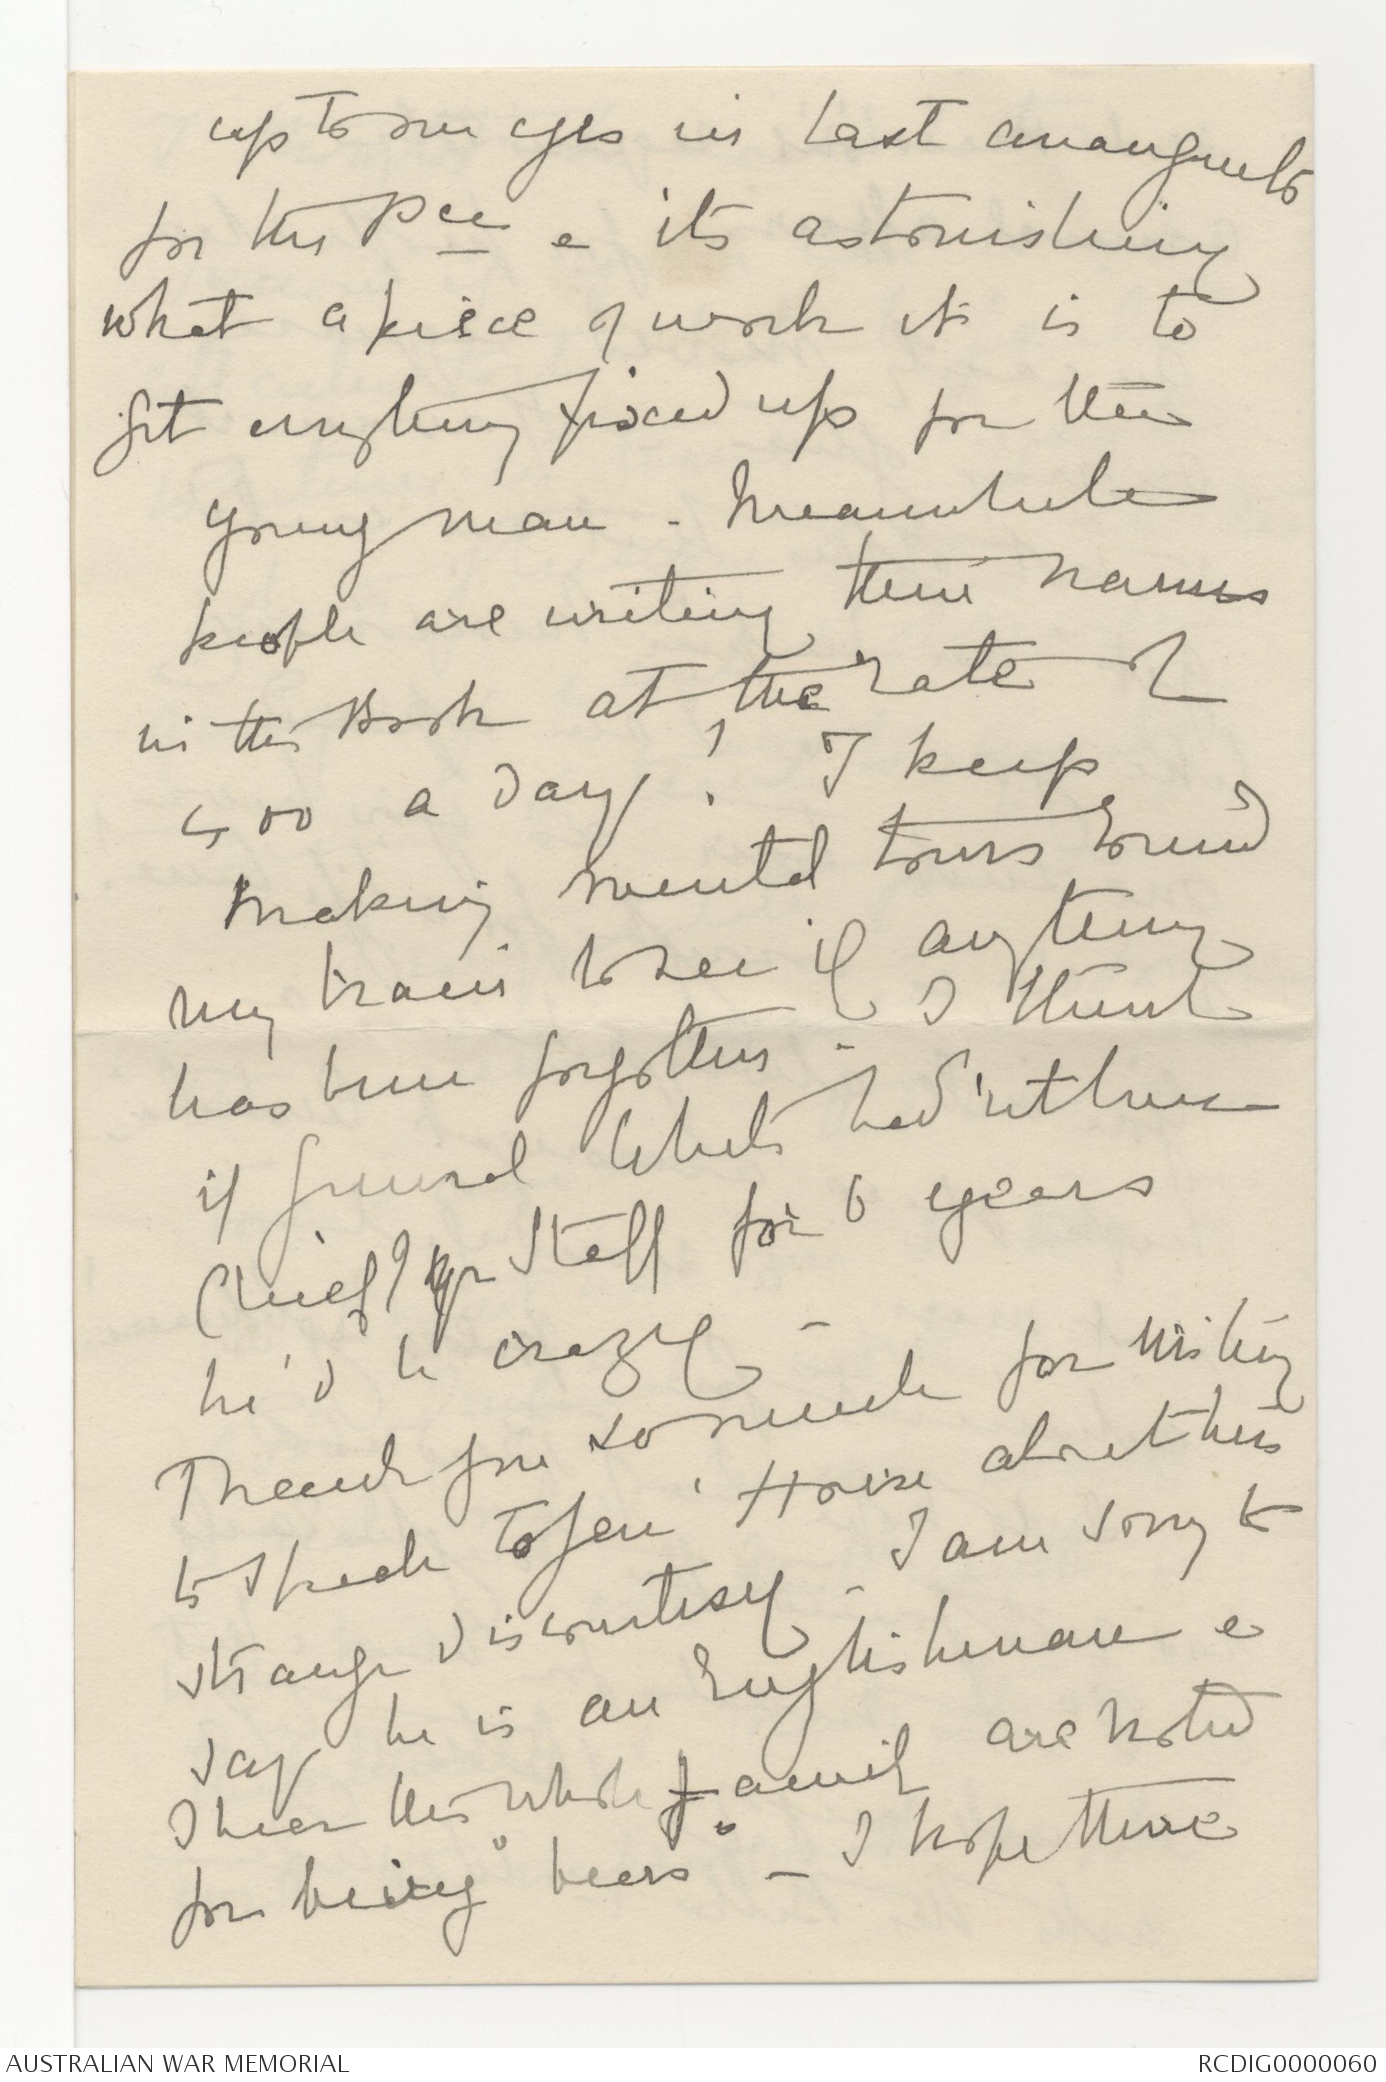 up to our eyes in last arrangements
for the Pce & its astonishing
what a piece of work it is to
get anything fixed up for the
young man - Meanwhile
people are writing their names
in the Book at the rate of
400 a day! I keep
making mental tours round
my brain to see if anything
has been forgotten - I think
if General White hadn't been
Chief of Staff for 6 years
he'd be crazy -
Thank you so much for writing
to speak to Gen' House about his
strange discourtesy - I am sorry to
say he is an Englishman &
I hear the whole family are noted
for being "bears" - I hope there
AUSTRALIAN WAR MEMORIAL
RCDIG0000060